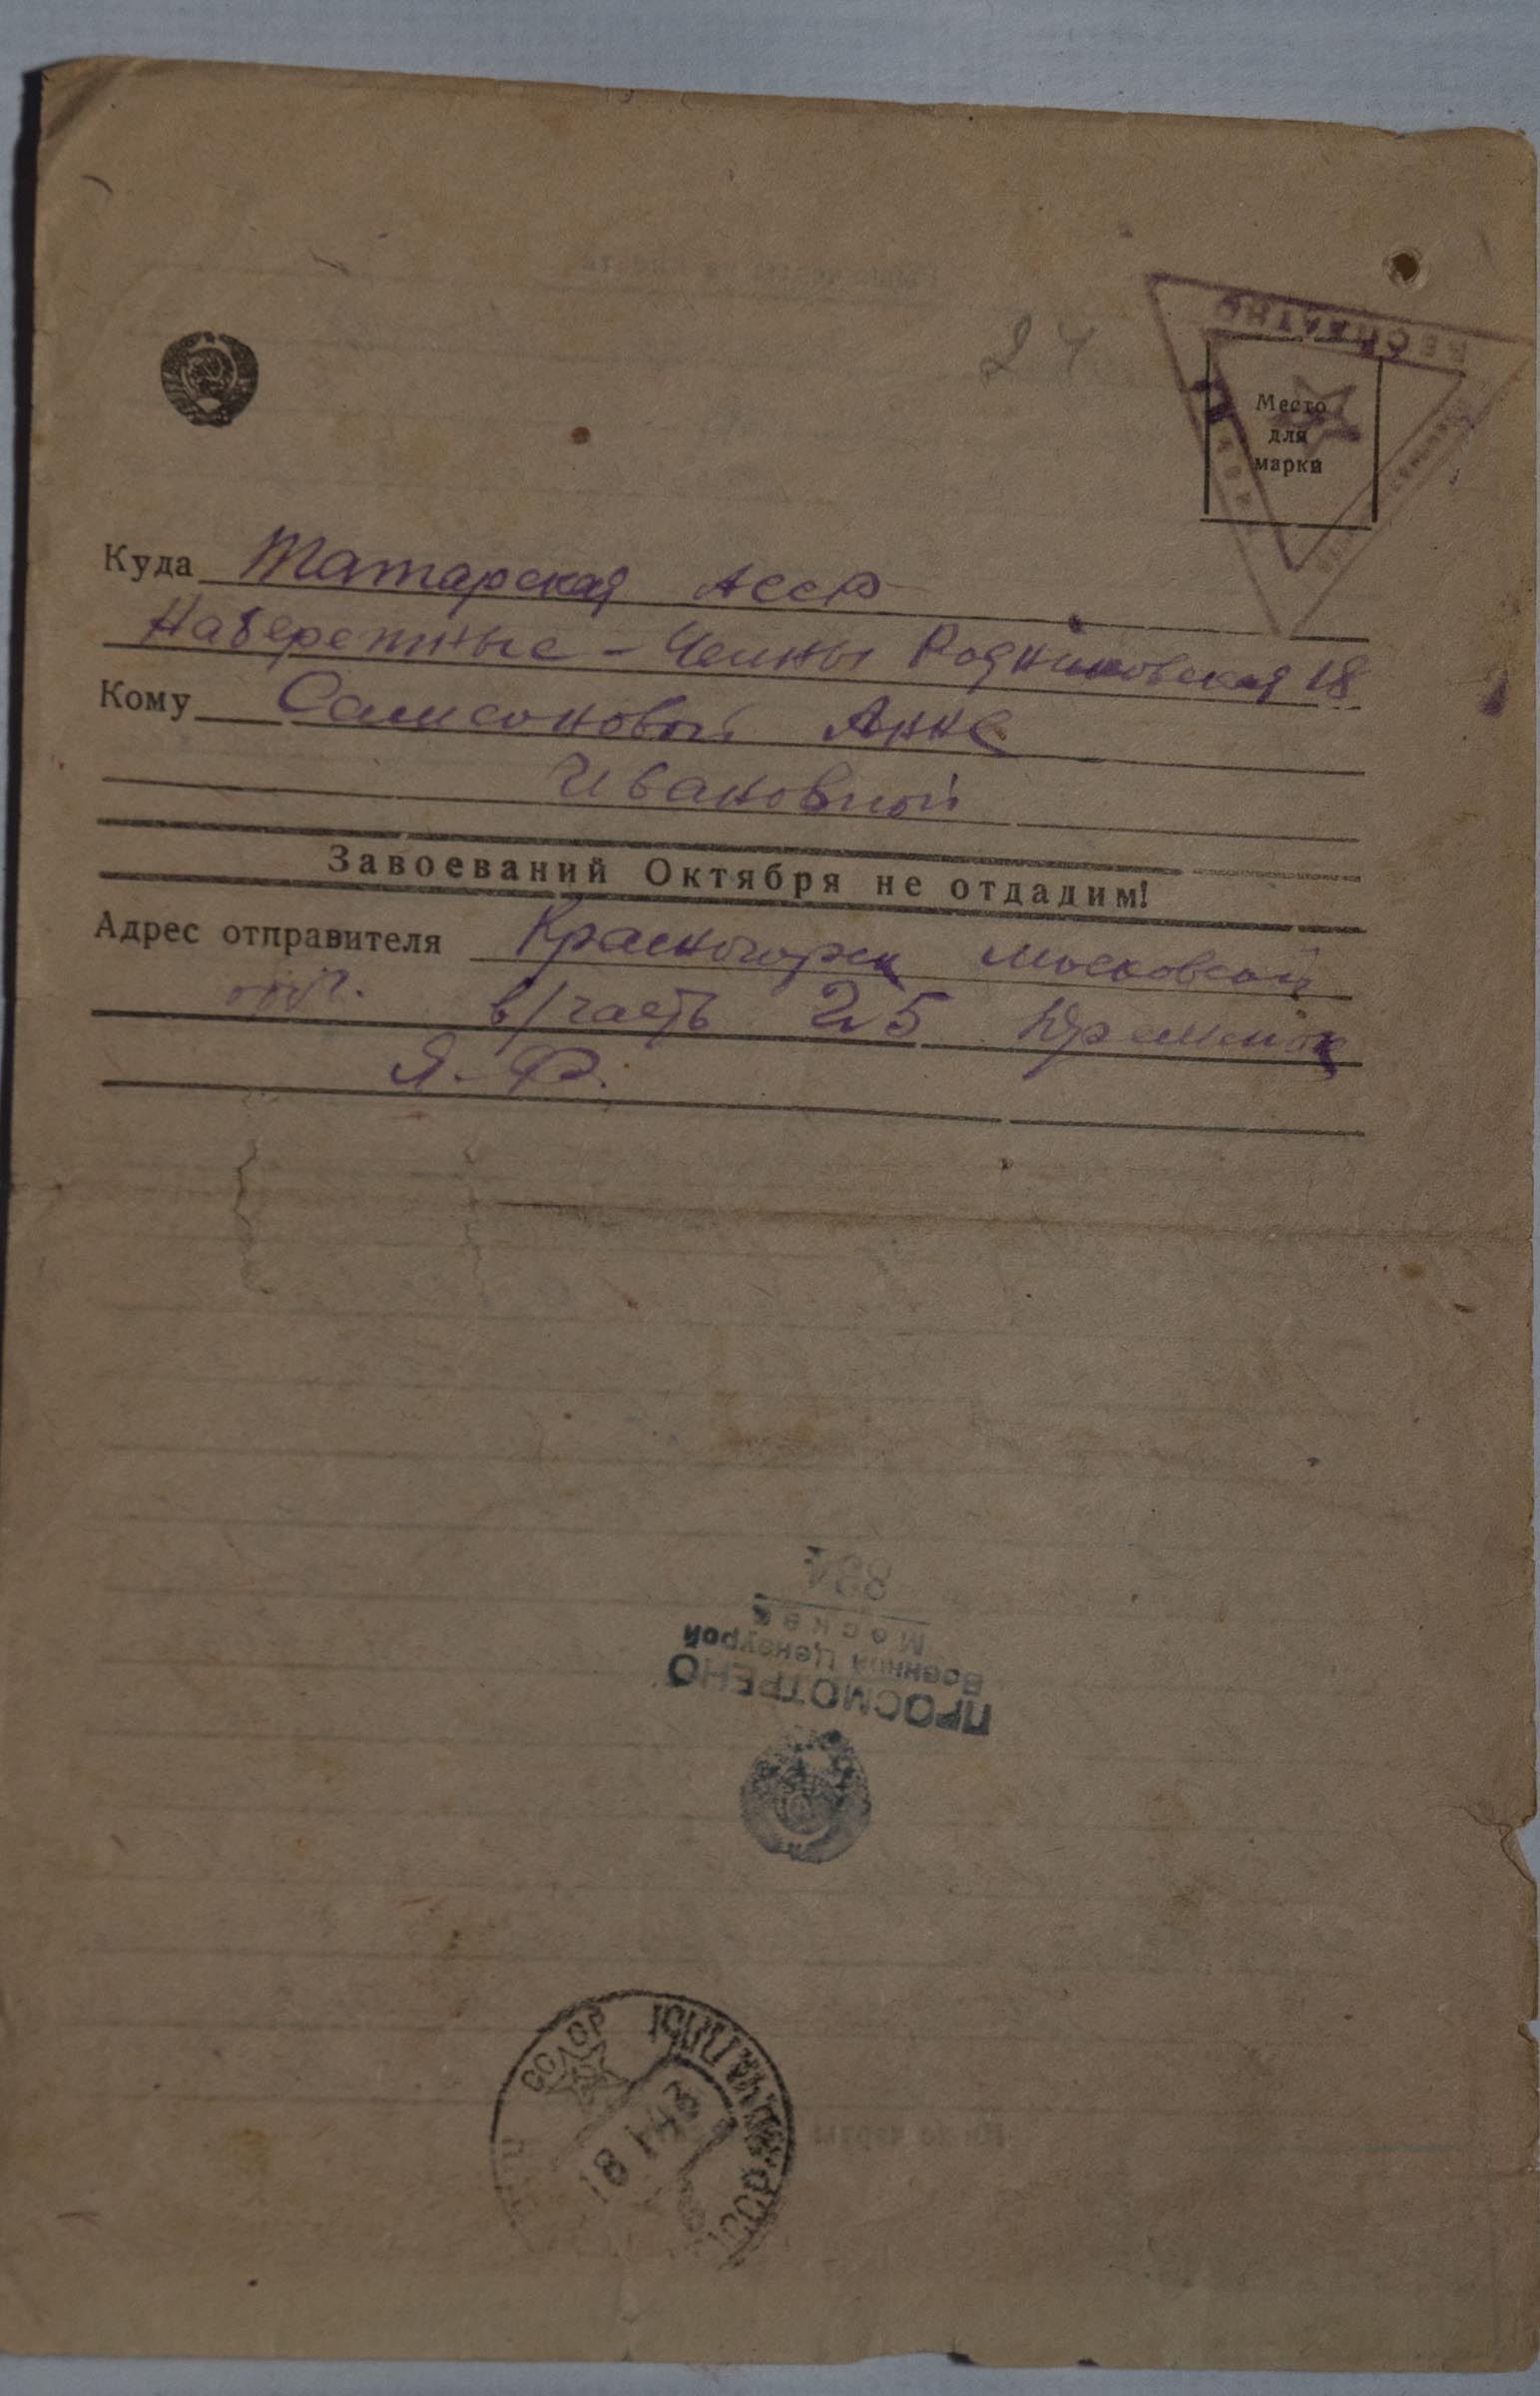 24
БЕСПЛАТНО
Место
для
марки
Куда Татарская АССР
Набережные - Челны Родниковская 18
Кому Самсоновой Анне
Ивановной
Завоеваний Октября не отдадим!
Адрес отправителя Красногорск Московской
обл. в/часть 25
Я. Ф.
ПРОСМОТРЕНО
Военной Цензурой
Москва
884
ЧЕЛНЫ
18 1 43